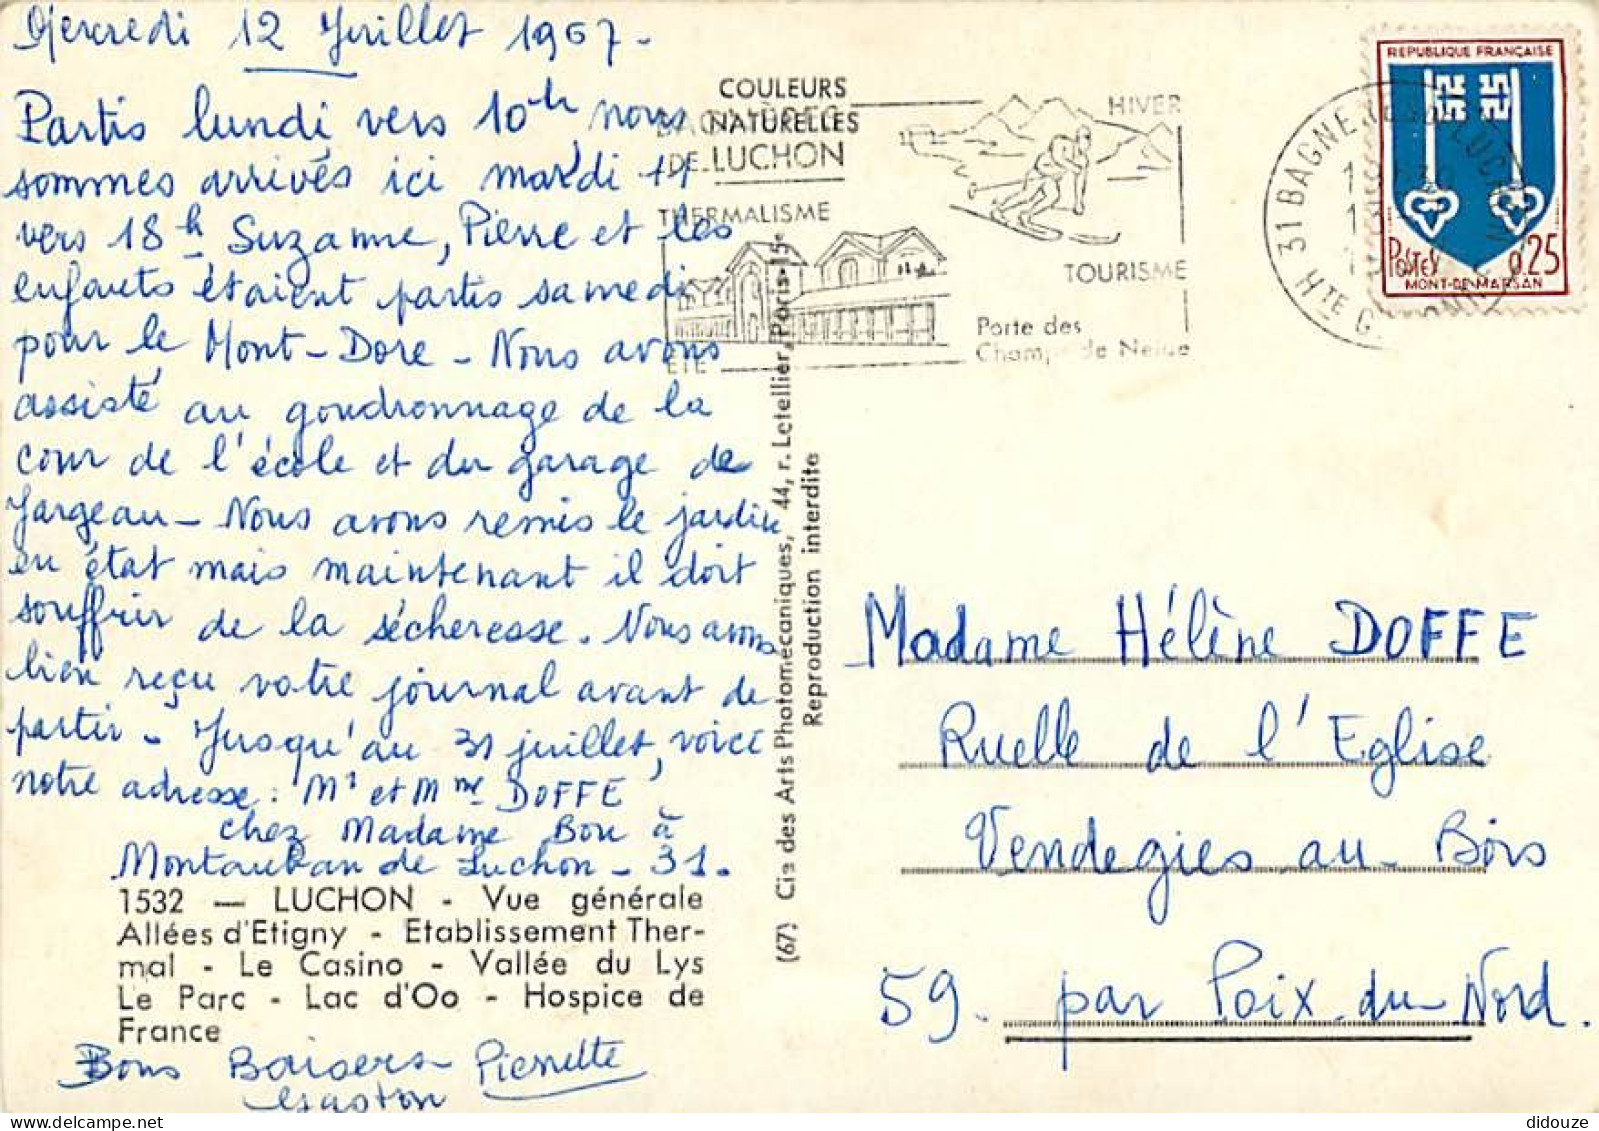 Mercredi 12 Juillet 1967.
Partis lundi vers 10h, nous
sommes arrivés ici mardi 11
vers 18h Suzanne, Pierre et les
enfants étaient partis samedi
pour le Mont-Dore - Nous avons
assisté au goudronnage de la
cour de l'école et du garage de
Jargeau - Nous avons remis le jardin
en état mais maintenant il doit
souffrir de la sécheresse. Nous avons
bien reçu votre journal avant de
partir - Jusqu'au 31 juillet, voici
notre adresse : Mr et Mme DOFFE
chez Madame Bon à
Montauban de Luchon - 31.
1532 — LUCHON - Vue générale
Allées d'Etigny - Etablissement Ther-
mal - Le Casino - Vallée du Lys
Le Parc - Lac d'Oo - Hospice de
France
Bons Baisers Pierrette
Gaston
(67) Cie des Arts Photomécaniques, 44, r. Letellier, Paris-15e
Reproduction interdite
COULEURS
NATURELLES
DE LUCHON
THERMALISME
ÉTÉ
HIVER
TOURISME
Porte des
Champs de Neige
31 BAGNERES DE LUCHON
HTE G.
REPUBLIQUE FRANÇAISE
POSTES 0,25
MONT-DE-MARSAN
Madame Hélène DOFFE
Ruelle de l'Eglise
Vendegies au Bois
59. par Poix du Nord.
didouze